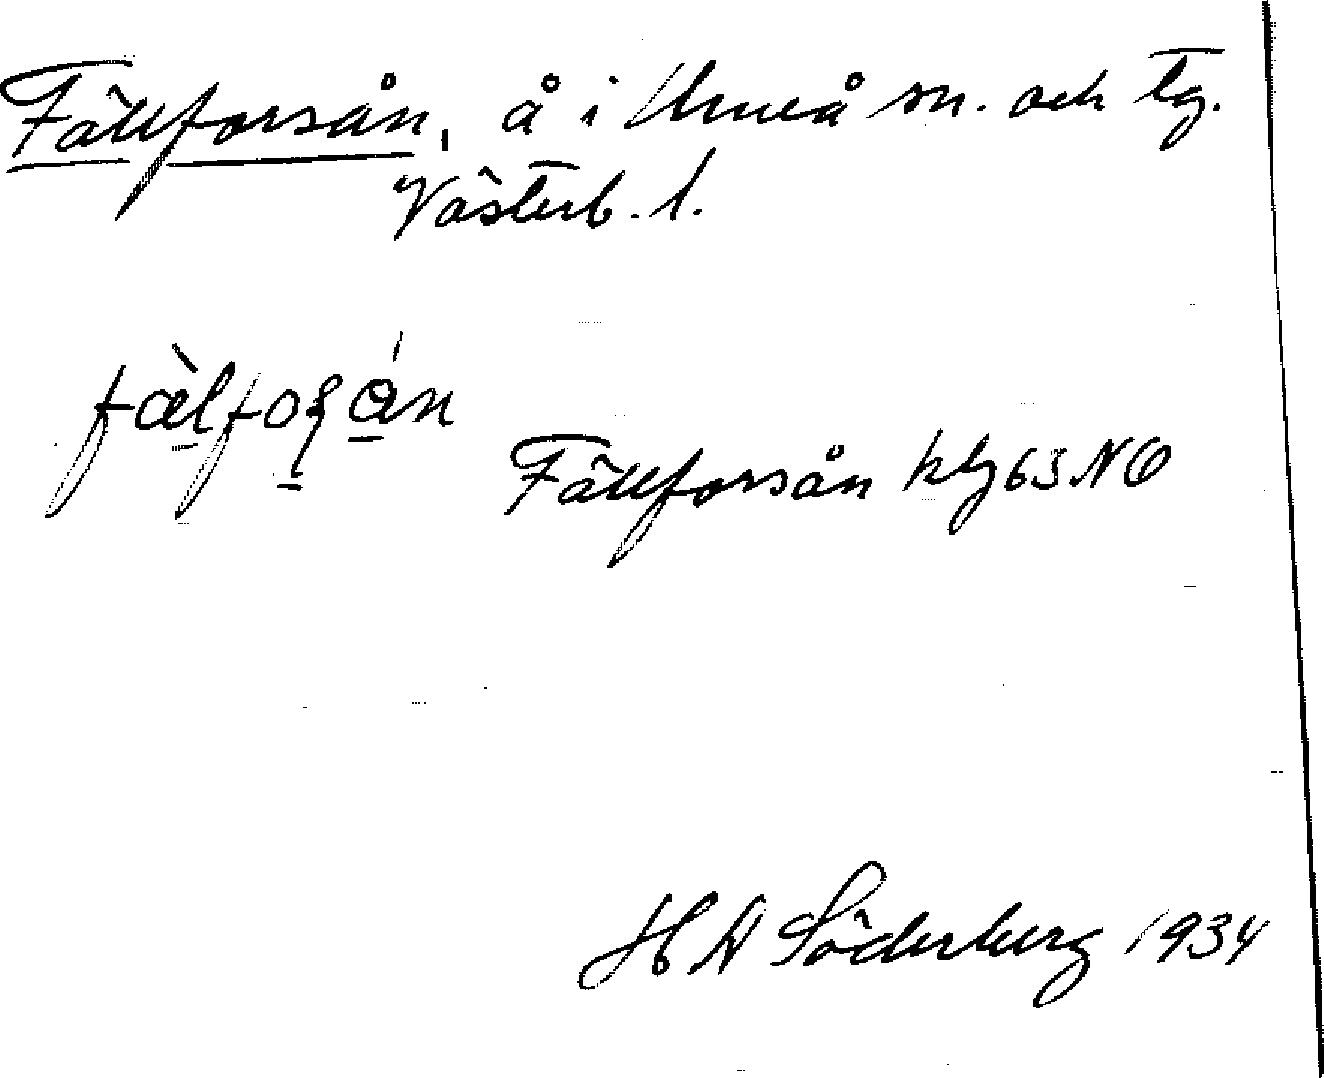 Fällforsån, å i Umeå sn. och tg.
Västerb. l.
fälfoʂån
Fällforsån kbg 63 NO
H A Söderberg 1934